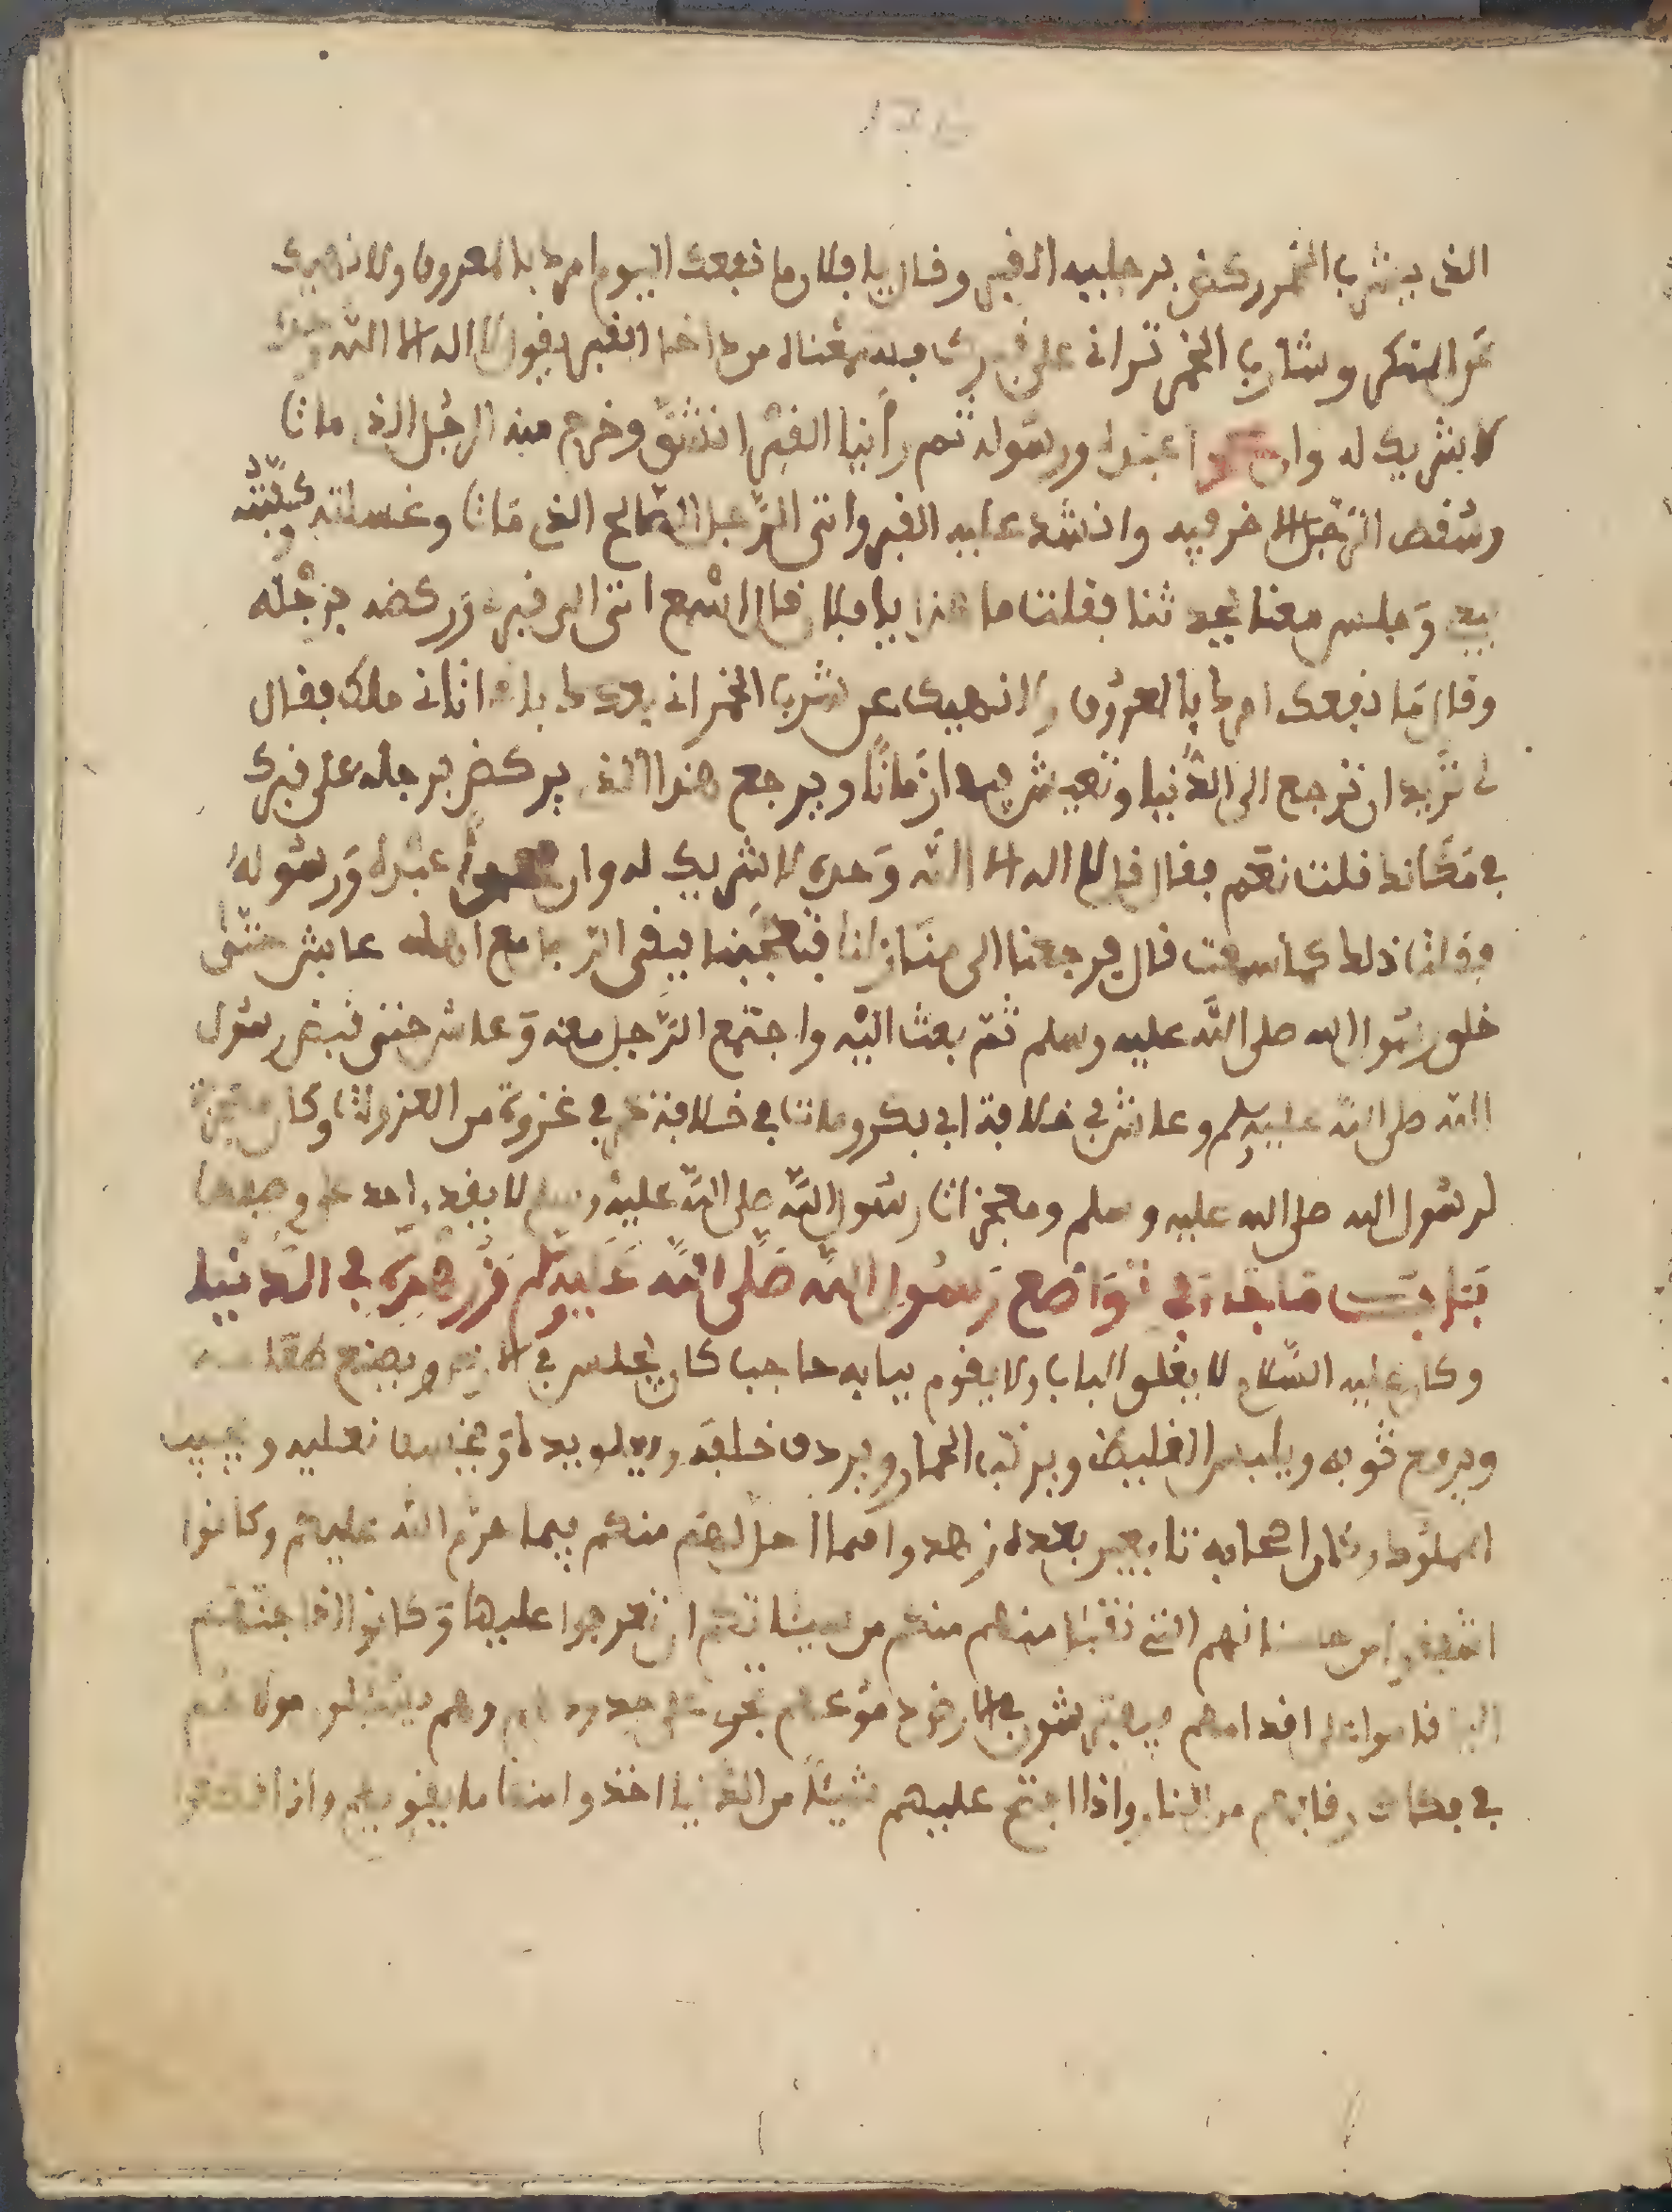 الذي يشرب الخمر ركض برجليه القبر وقال يا فلان ما نفعك اليوم امرك بالمعروف ولا نهيك
عن المنكر وشارب الخمر تراه على قبرك فسمعناه من داخل القبر يقول لا اله الا الله وحده
لا شريك له وان محمدا عبده ورسوله ثم رأينا القبر انشق وخرج منه الرجل الذي مات
وسقط الرجل الاخر فيه وانسد عليه القبر واتى الرجل الصالح الذي مات وغسلته وكفنته
بيدي وجلس معنا يحدثنا فقلنا ما هذا يا فلان قال اسمع اتى الى قبري وركضه برجله
وقال ما نفعك امرك بالمعروف ولا نهيك عن شرب الخمر انه بعد ذلك اتاني ملك فقال
لي تريد ان ترجع الى الدنيا وتعيش فيها زمانا ويرجع هذا الذي يركض برجله على قبرك
في مكانك قلت نعم فقال قل لا اله الا الله وحده لا شريك له وان محمدا عبده ورسوله
فقلت ذلك كما سمعت قال فرجعنا الى منازلنا فتعجبنا فبقى الرجل مع اهله عايش حتى
خلق رسول الله صلى الله عليه وسلم ثم بعث اليه واجتمع الرجل معه وعاش حتى قبض رسول
الله صلى الله عليه وسلم وعاش في خلافة ابي بكر ومات في خلافة عمر في غزوة من الغزوات وكان معجزة
لرسول الله صلى الله عليه وسلم ومعجزات رسول الله صلى الله عليه وسلم لا يقدر احد على وصفها
باب ما جاء في تواضع رسول الله صلى الله عليه وسلم وزهده في الدنيا
وكان عليه السلام لا يغلق الباب ولا يقوم ببابه حاجب كان يجلس في الارض ويضع طعامه
ويرقع ثوبه ويلبس الغليظ ويركب الحمار ويردف خلفه ويلعق يده ويخصف نعليه ويجيب
المملوك وكان اصحابه تابعين بعده ازهدوا فيما احل لهم منكم فيما حرم الله عليهم وكانوا
اشفق من حسناتهم التي تقبل منهم منكم من سيئاتكم ان تعرجوا عليها وكانوا اذا جنهم
الليل قاموا على اقدامهم يفترشون في الارض دموعهم تجري على خدودهم وهم يسئلون مولاهم
في فكاك رقابهم من النار واذا افتح عليهم شيئا من الدنيا اخذوا منها ما يقويهم واذا